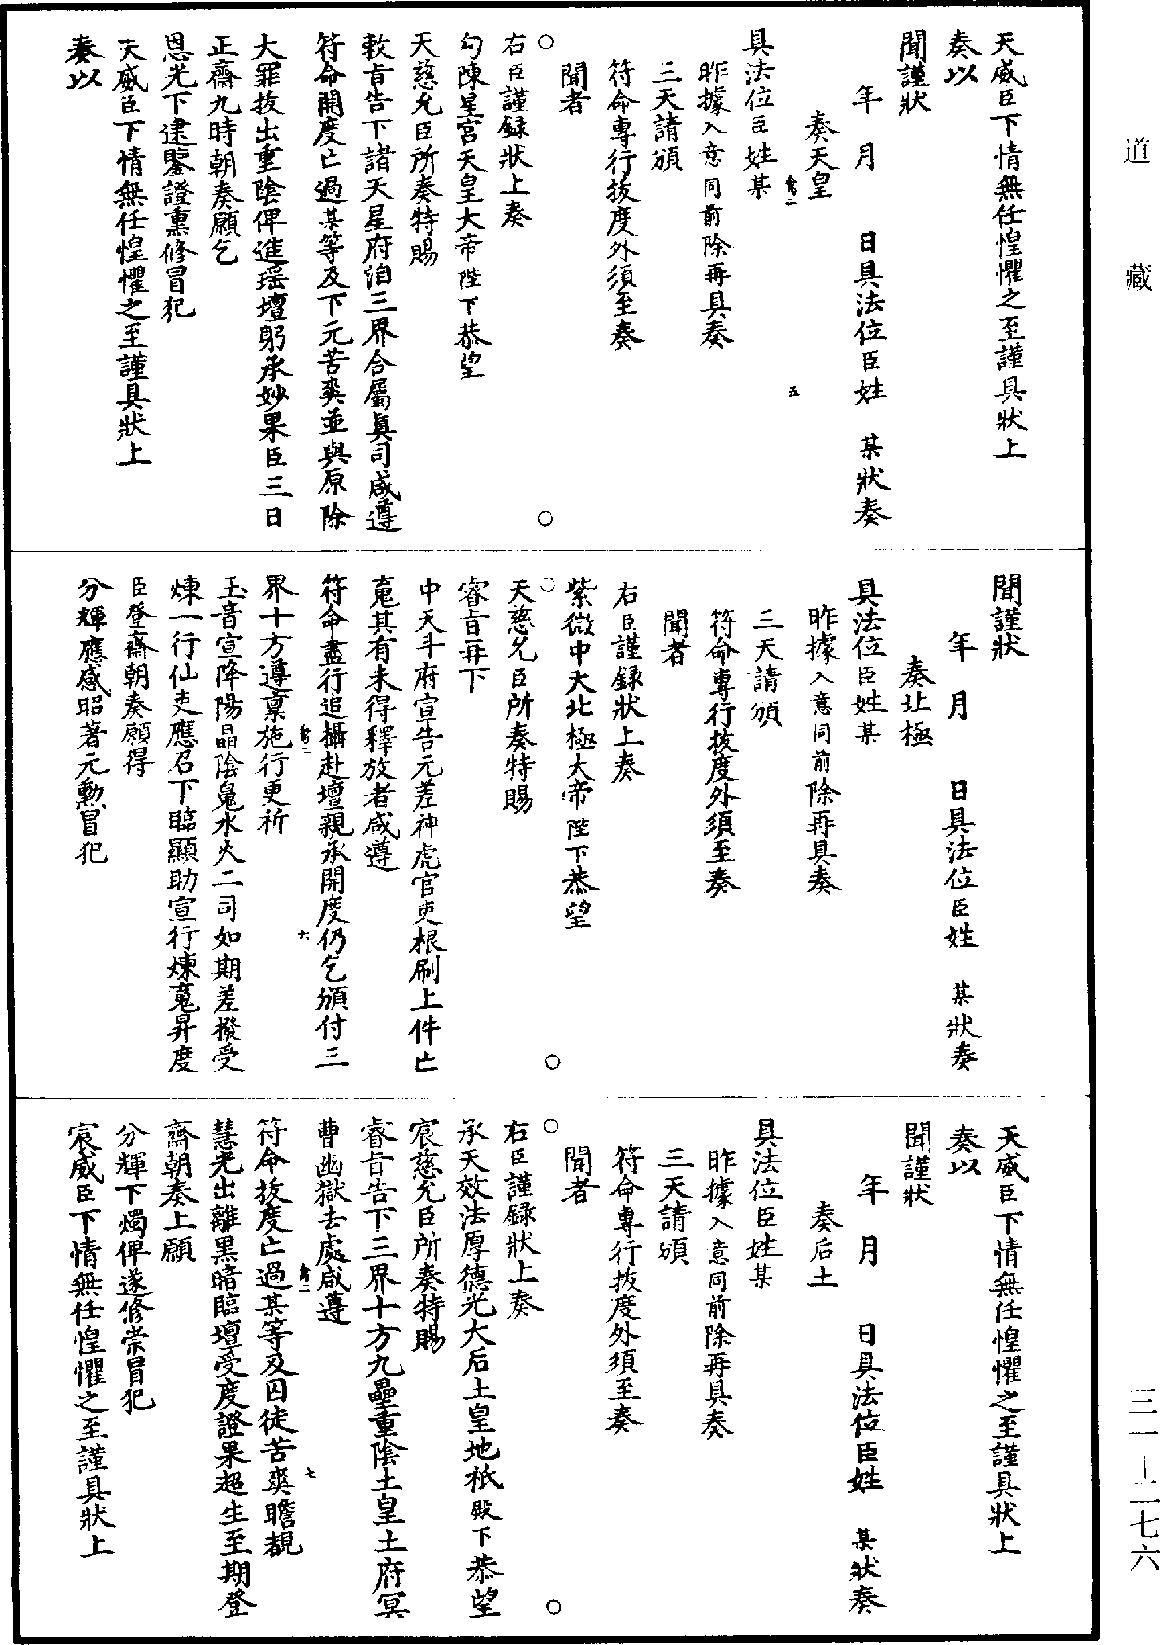 道藏
天威臣下情無任惶懼之至謹具狀上
奏以
聞謹狀
年 月 日具法位臣姓 某狀奏
奏天皇
具法位臣姓某
昨據入意同前除再具奏
三天請頒
符命專行拔度外須至奏
聞者
五
○ ○
右臣謹録狀上奏
勾陳星宮天皇大帝陛下恭望
天慈允臣所奏特賜
敕旨告下諸天星府洎三界合屬眞司咸遵
符命開度亡過某等及下元苦爽並與原除
大罪拔出重陰俾進瑶壇躬承妙果臣三日
正齋九時朝奏願乞
恩光下逮鑒證熏修冒犯
天威臣下情無任惶懼之至謹具狀上
奏以
聞謹狀
年 月 日具法位臣姓 某狀奏
奏北極
具法位臣姓某
昨據入意同前除再具奏
三天請頒
符命專行拔度外須至奏
聞者
右臣謹録狀上奏
紫微中天北極大帝陛下恭望
○ ○
天慈允臣所奏特賜
睿旨再下
中天斗府宣告元差神虎官吏根刷上件亡
䰟其有未得釋放者咸遵
符命盡行追攝赴壇親承開度仍乞頒付三
六
界十方遵禀施行更祈
玉音宣降陽晶陰䰟水火二司如期差撥受
煉一行仙吏應召下臨顯助宣行煉䰟昇度
臣登齋朝奏願得
分輝應感昭著元勲冒犯
天威臣下情無任惶懼之至謹具狀上
奏以
聞謹狀
年 月 日具法位臣姓 某狀奏
奏后土
具法位臣姓某
昨據入意同前除再具奏
三天請頒
符命專行拔度外須至奏
聞者
○ ○
右臣謹録狀上奏
承天效法厚德光大后土皇地祇殿下恭望
宸慈允臣所奏特賜
睿旨告下三界十方九壘重陰土皇土府冥
曹幽獄去處咸遵
七
符命拔度亡過某等及囚徒苦爽瞻覩
慧光出離黑暗臨壇受度證果超生至期登
齋朝奏上願
分輝下燭俾遂修崇冒犯
宸威臣下情無任惶懼之至謹具狀上
三一—二七六